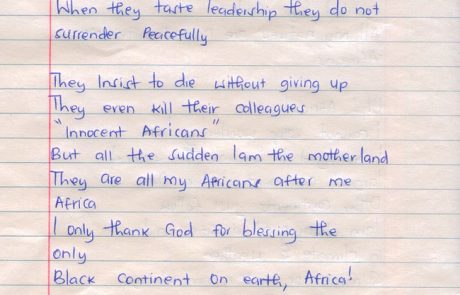 When they taste leadership they do not
surrender Peacefully
They Insist to die without giving up
They even kill their colleagues
"Innocent Africans"
But all the sudden I am the motherland
They are all my Africans after me
Africa
I only thank God for blessing the
only
Black Continent on earth, Africa!